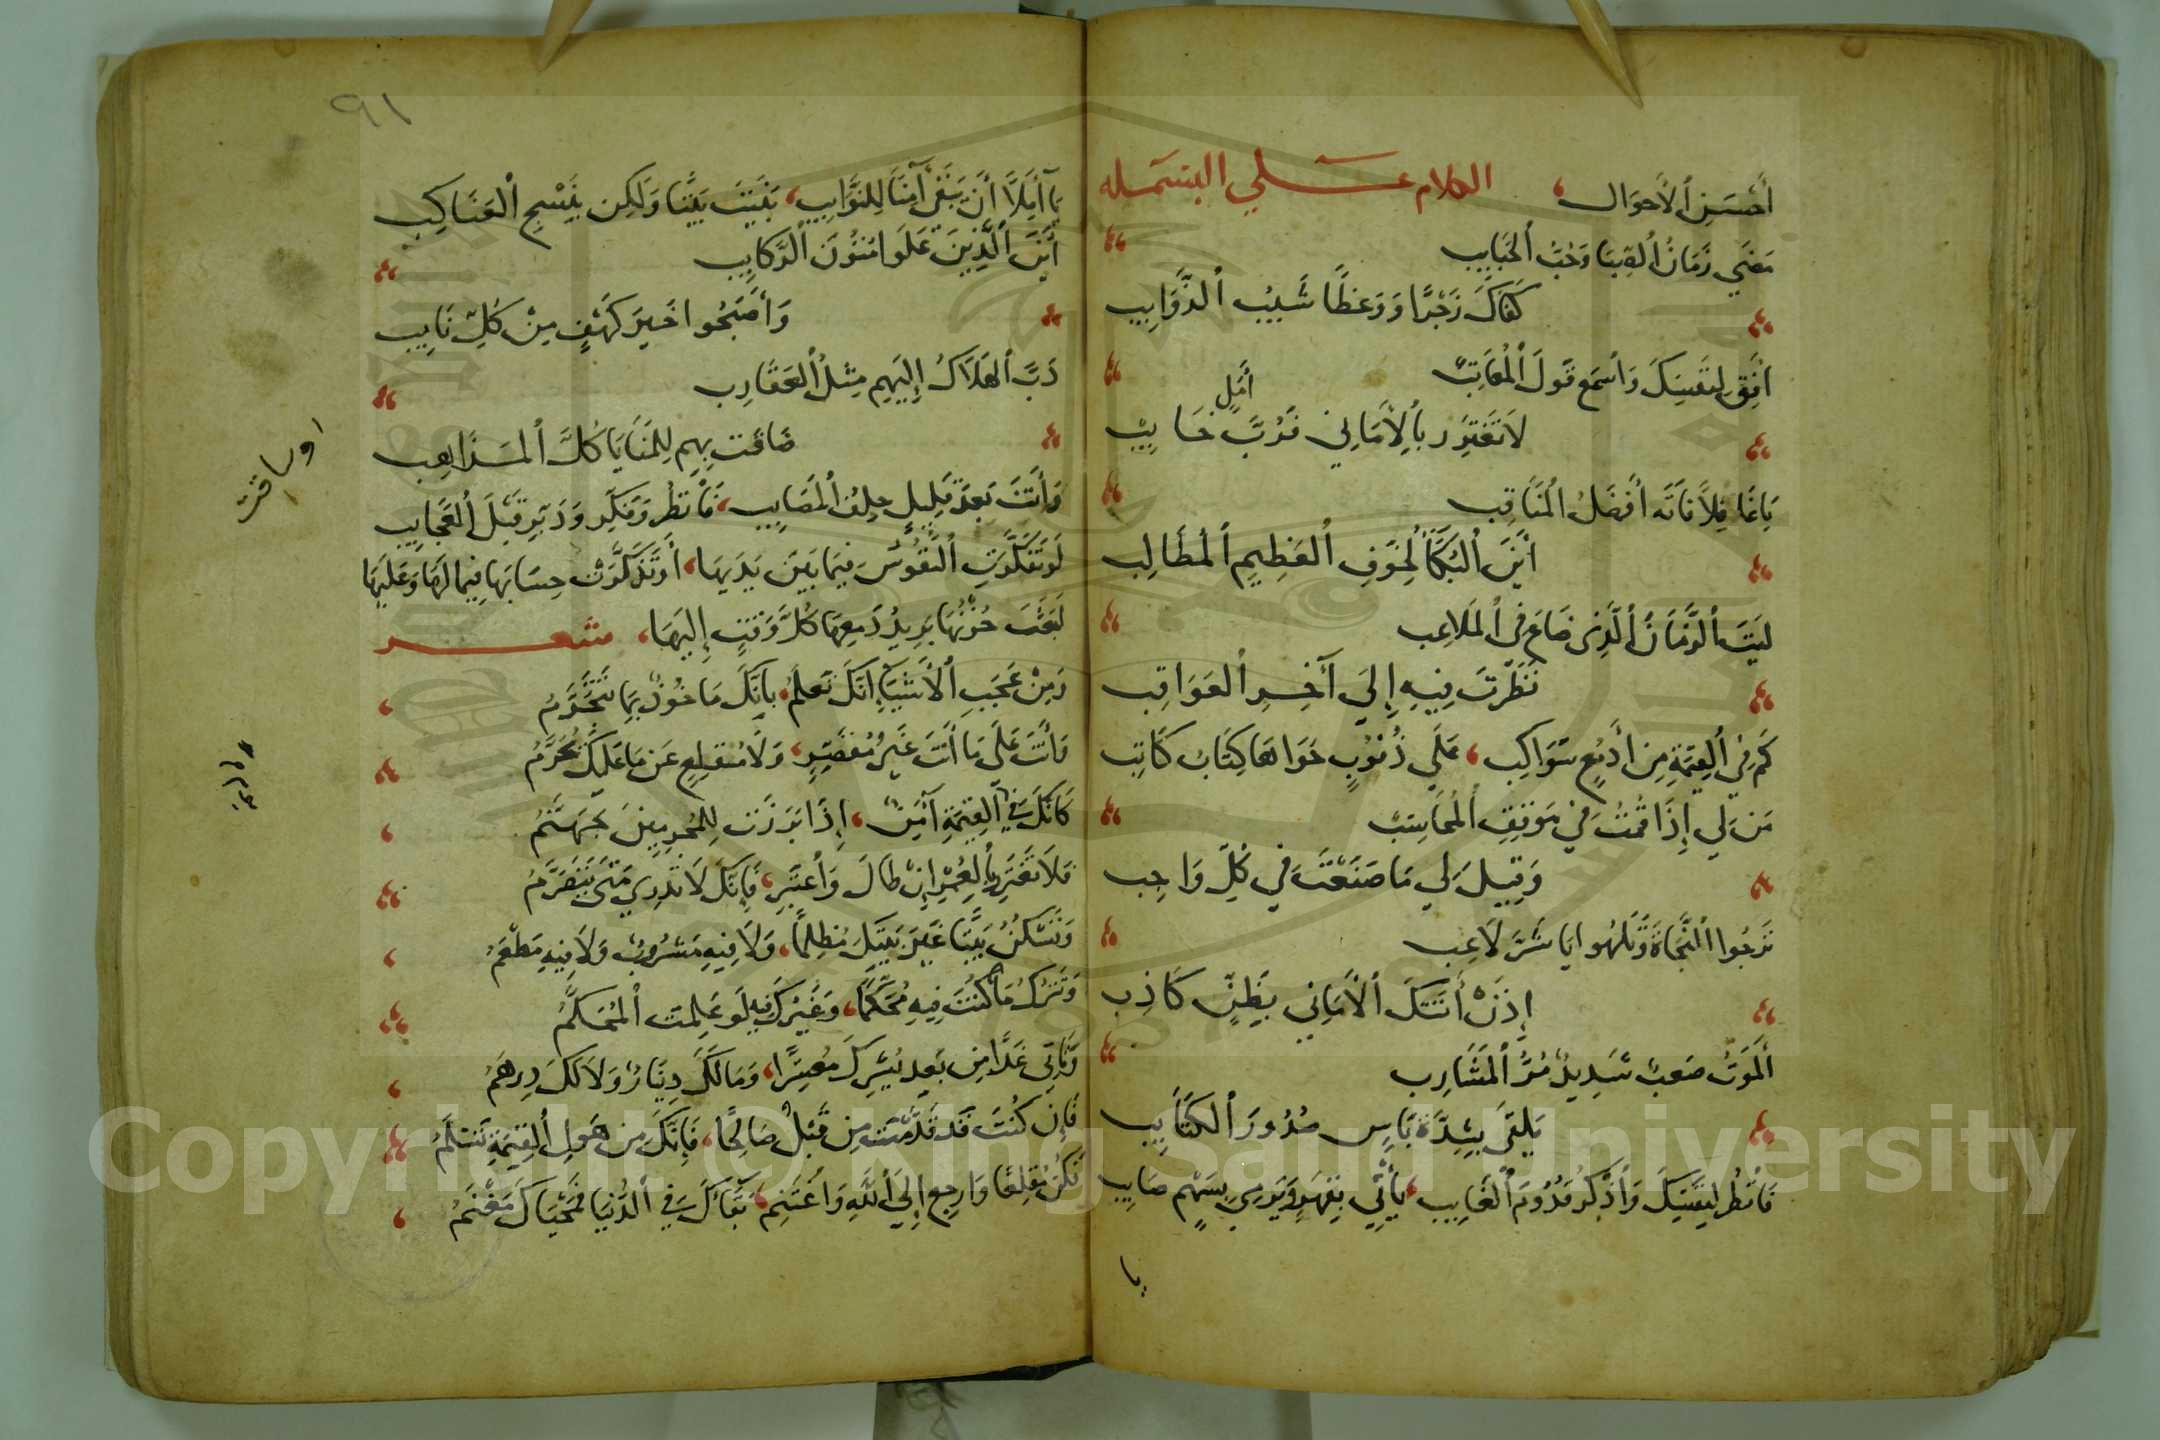 أَحْسَنِ ٱلأَحوَال، الكلام عَلي البَسْمَله
مَضَي زَمَانُ ٱلصِبَا وَحُبُّ ٱلحَبَايِب
كَفَاكَ زَجْرًا وَوَعْظًا شَيْبُ ٱلذَّوَايِب
اَفِق لِنَفسِكَ وَٱسْمَع قَولَ ٱلْمُعَاتِبْ
لَا تَغْتَرِر بِٱلْأَمَانِي فَرُبَّ أَمَلٍ خَايِبْ
يَا غَافِلاً فَاتَه أَفضَلُ ٱلْمَنَاقِب
أَيْنَ ٱلْبُكَآ لِخَوفِ ٱلْعَظِيمِ ٱلْمطَالِب
لَيتَ ٱلزَّمَانُ ٱلَّذِى ضَاعَ فى ٱلمَلَاعِب
نَظَرْتَ فِيهِ إِلَي آخِرِ ٱلْعَوَاقِب
كَم فِي ٱلقِيٰمَةِ مِن أَدمُعٍ سَوَاكِب، عَلَي ذُنُوبٍ حَوَاهَا كِتَابُ كَاتِب
مَن لِي إِذَا قُمْتُ فِي مَوقِفِ ٱلْمُحَاسِبْ
وَقِيلَ لِي مَا صَنَعْتَ فِي كُلِّ وَاجِب
تَرجُوا ٱلنَّجَاةَ وَتَلهُوا يَا شَرَّ لَاعِب
إِذَنْ أَتَتكَ ٱلْأَمَانِي بِظَنٍّ كَاذِب
أَلمَوتُ صَعبٌ شَدِيدٌ مُرُّ ٱلمَشَارِب
يَلقَى بِشِدَّةِ بَاسٍ صُدُورَ ٱلكَتَائِب
فَٱنظُر لِنَفسِكَ وَٱذْكُر قُدُومَ ٱلْغَايِب، يَأْتِي بِقَهرٍ وَيَرمِي بِسَهْمٍ صَايِب
يا
٩١
يَا آمِلاً أَن يَبْقَى آمِنًا لِلنَّوَايِب، بَنَيتَ بَيْتًا وَلَكِن بِنَسْجِ ٱلعَنَاكِب
أَيْنَ ٱلَّذِينَ عَلَوا مُتُونَ ٱلرَّكَايِب
وَأَصْبَحُوا خَيرَ كَهْفٍ مِنْ كُلِّ نَايِب
دَبَّ ٱلْهَلَاكُ إِلَيهِم مِثلُ ٱلْعَقَارِب
ضَاقَت بِهِم لِلمَنَايَا كُلُّ ٱلمَذَاهِب
وَأَنتَ بَعدَ قَلِيلٍ حِلفُ ٱلمَصَايِب، فَٱنظُر وَفَكِّر وَدَبِّر قَبلَ ٱلعَجَايِب
لَو تَفَكَّرَتِ ٱلنُّفُوسُ فِيمَا بَيْنَ يَدَيهَا، أَو تَذَكَّرَتْ حِسَابَهَا فِيمَا لَهَا وَعَلَيهَا
لَبَعَثَ حُزْنُهَا بَرِيدُ دَمعِهَا كُلَّ وَقتٍ إِلَيهَا، شعر
وَمِنْ عَجَبِ ٱلْأَشيَآءِ انَّكَ تَعلَمُ، بِأَنَّكَ مَاخُوذٌ بِمَا تَتَجَرَّمُ
وَأَنتَ عَلَي مَا أَنتَ غَيرُ مُقَصِّرٍ، وَلَا مُقلِعٍ عَن مَا عَلَيكَ مُحَرَّمُ
كَأَنَّكَ فِي ٱلقِيٰمَةِ آمِنٌ، إِذَا بَرَزَت لِلمُجرِمِينَ جَهَنَّمُ
فَلَا تَغتَرِر بِٱلعُمْرِ إِنْ طَالَ وَٱعتَبِر، فَإِنَّكَ لَا تَدرِي مَتَى يَتَصَرَّمُ
وَتَسكُنُ بَيتًا غَيرَ بَيتِكَ مُظلِمًا، وَلَا فِيهِ مَشرُوبٌ وَلَا فِيهِ مَطْعَمُ
وَتَترُكُ مَا كُنتَ فِيهِ مُحَكَّمًا، وَغَيرُكَ فِيهِ لَو عَلِمتَ ٱلْمُحَكَّمُ
وَتَأتِي غَدًا مِن بَعدِ يُسْرِكَ مُعسِرًا، وَمَا لَكَ دِينَارٌ وَلَا لَكَ دِرهَمُ
فَإِن كُنتَ قَد قَدَّمْتَ مِن قَبْلُ صَالِحًا، فَإِنَّكَ مِن هَولِ ٱلقِيٰمَةِ تَسْلَمُ
فَكُن مُقلِعًا وَٱرجِع إِلَي ٱللَّهِ وَٱغتَنِم، بَقَاكَ فِي ٱلدُّنيَا فَمَحْيَاكَ مَغْنَمُ